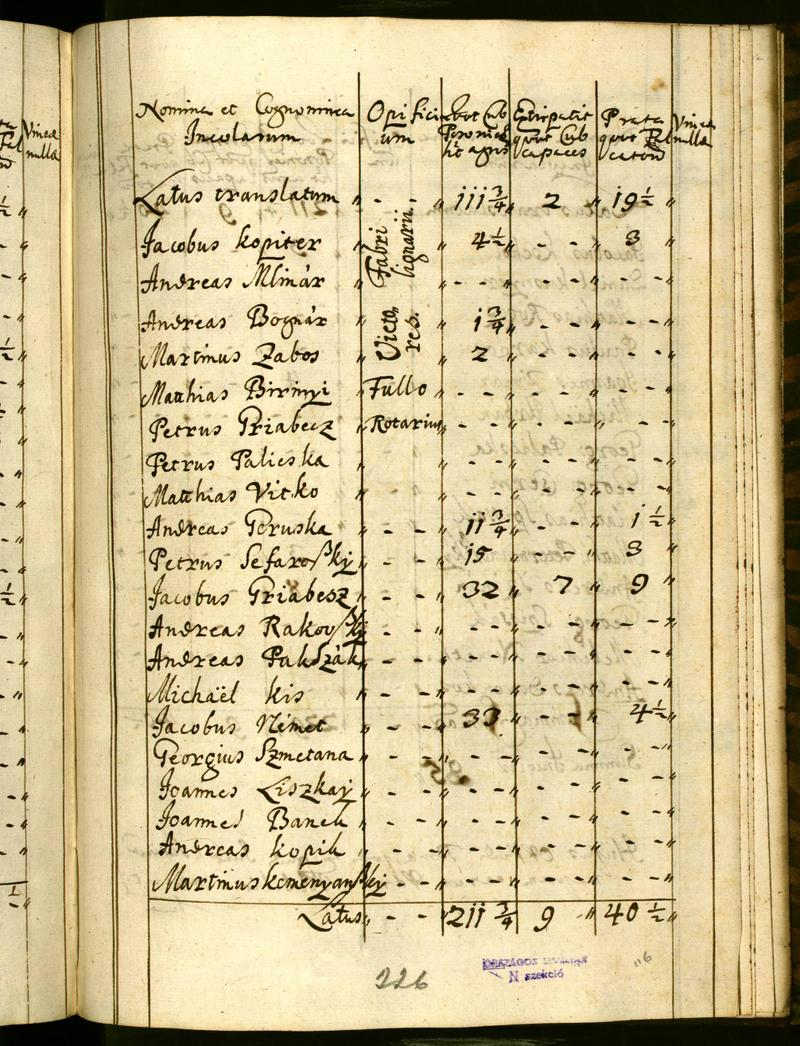 Nomina et Cognomina Incolarum | Opificium | Prata | Vinea nulla
Latus translatum " - " 111 3/4 " 2 " 19 1/2 "
Jacobus kopiter " Fabri lignarii. " 4 1/2 " - - " 3 "
Andreas Mlinár " " - - " - - " - - "
Andreas Bognár " Victores. " 1 3/4 " - - " - - "
Martinus Zabos " " 2 " - - " - - "
Matthias Birinyi Fullo " - - " - - " - - "
Petrus Griabecz Rotarius " - - " - - " - - "
Petrus Palieska " " - - " - - " - - "
Matthias Vitko " - - " - - " - - " - - "
Andreas Geruska " - - " 11 3/4 " - - " 1 1/2 "
Petrus Sefaroßkÿ " - - " 15 " - - " 3 "
Jacobus Griabesz " - - " 32 " 7 " 9 "
Andreas Rakovßkÿ " - - " - - " - - " - - "
Andreas Pakszák " - - " - - " - - " - - "
Michaël kis " - - " - - " - - " - - "
Jacobus Német " - - " 33 " - - " 4 1/2 "
Georgius Szmetana " - - " - - " - - " - - "
Joannes Liszkaÿ " - - " - - " - - " - - "
Joannes Baneh " - - " - - " - - " - - "
Andreas kopih " - - " - - " - - " - - "
Martinus kemenyanßkÿ " - - " - - " - - " - - "
Latus " - - " 211 3/4 " 9 " 40 1/2 "
226
ORSZÁGOS
N szekció